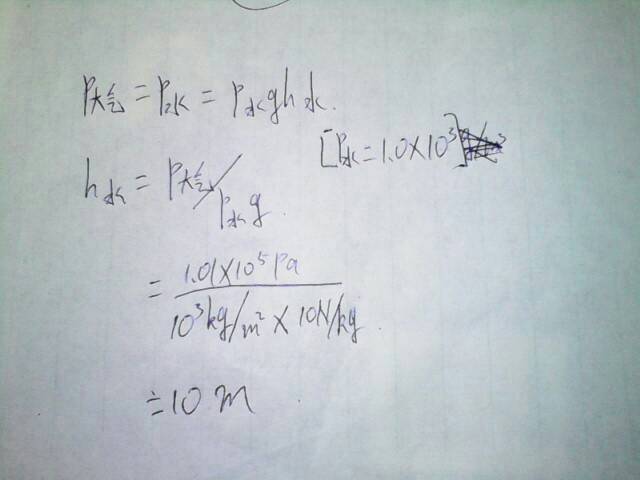 P大气 = P水 = ρ水gh水.
[ρ水=1.0×10³]
h水 = P大气/ρ水g.
= 1.01×10⁵Pa
10³kg/m² × 10N/kg.
≐10 m